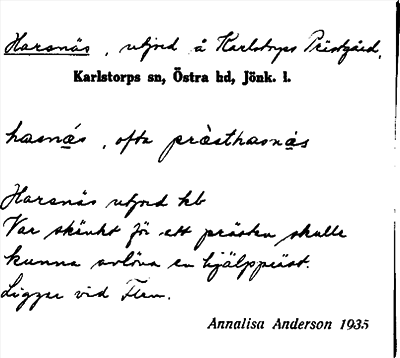 Harsnäs, utjord å Karlstorps Prästgård,
Karlstorps sn, Östra hd, Jönk. l.
hasnás, ofta præ̀sthasnás
Harsnäs utjord kb
Var skänkt för att prästen skulle
kunna avlöna en hjälppräst.
Ligger vid Flen.
Annalisa Anderson 1935